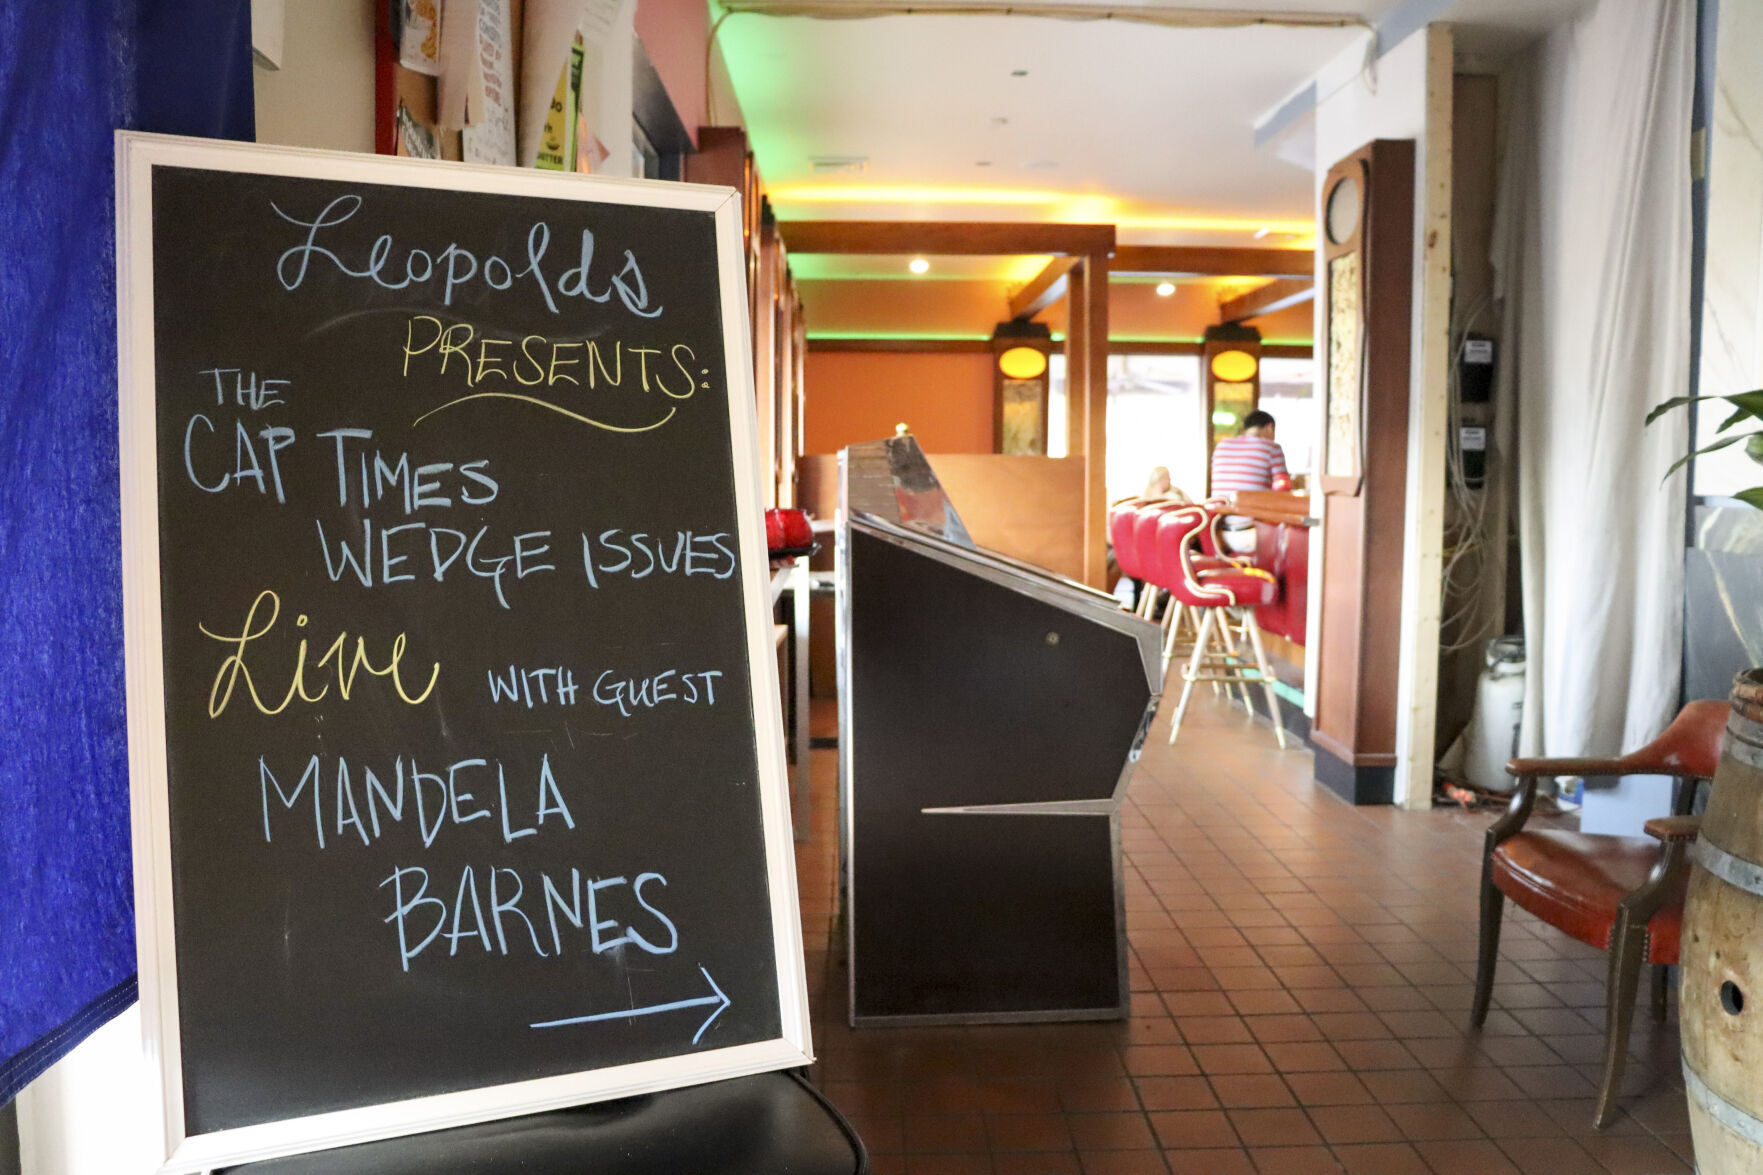 Leopolds
PRESENTS:
THE
CAP TIMES
WEDGE ISSUES
Live WITH GUEST
MANDELA
BARNES